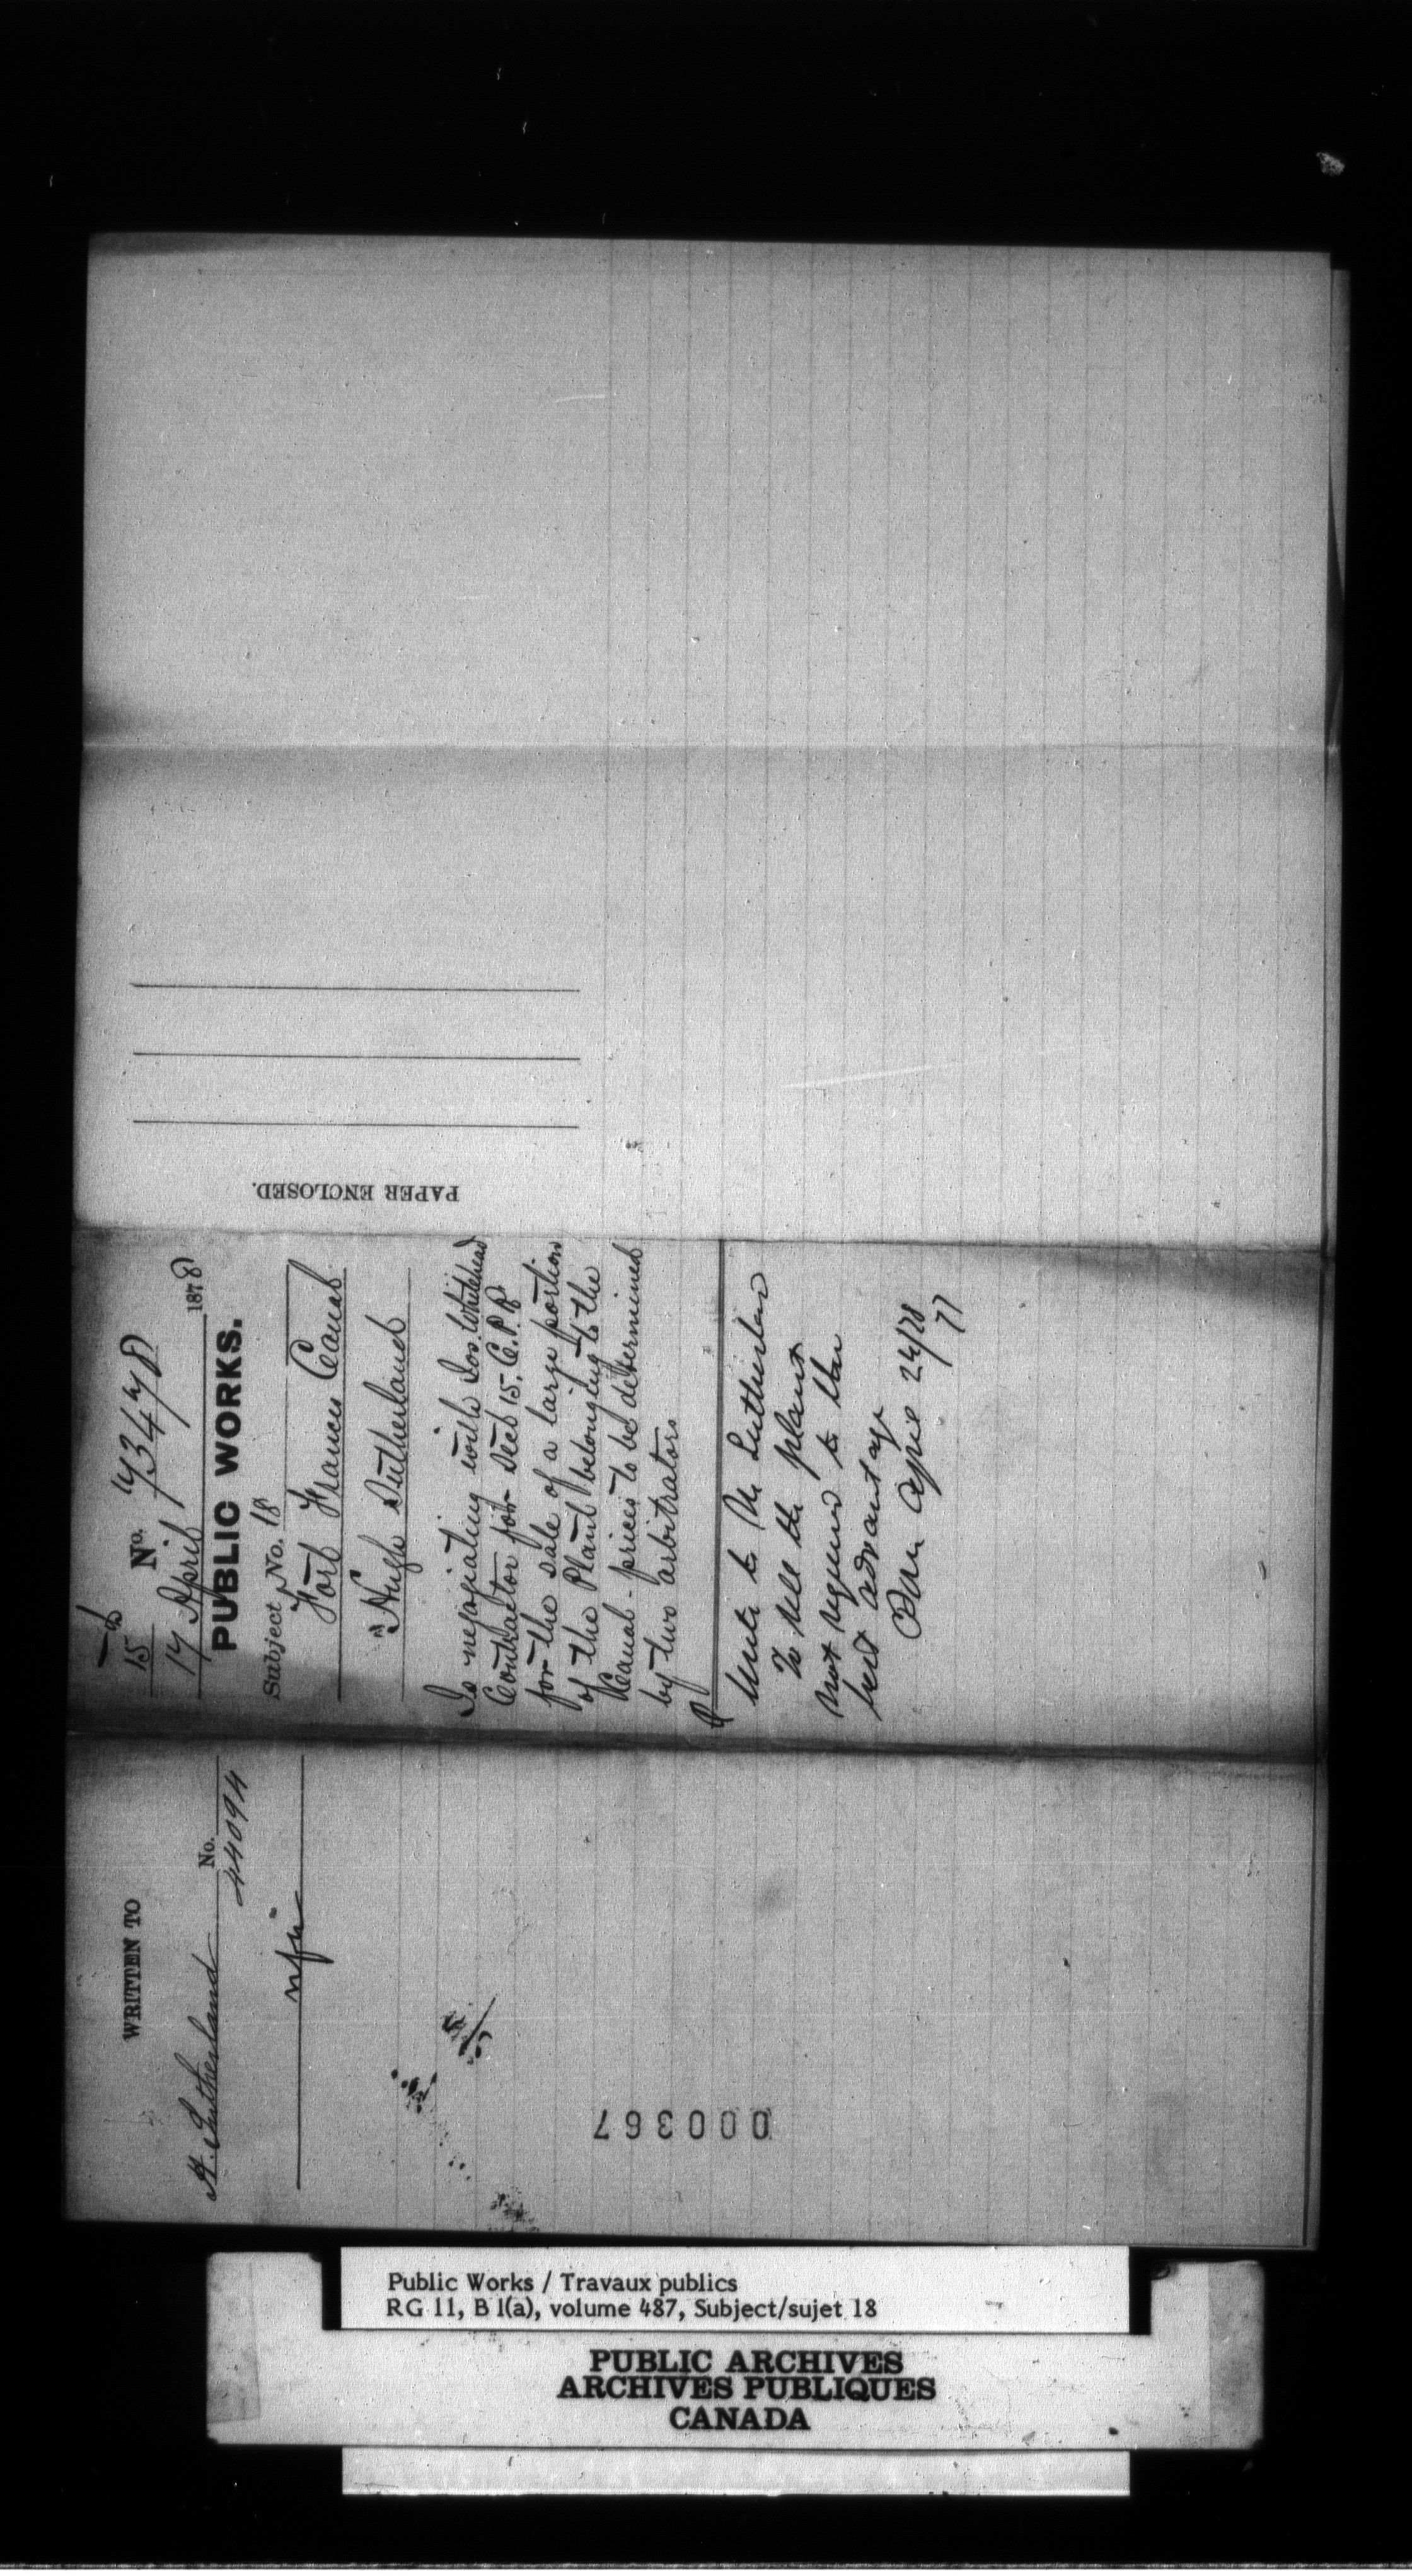 15
No. 73478
17 April 1878
PUBLIC WORKS.
Subject No. 18
Fort Frances Canal
Hugh Sutherland
Is negotiating with Jos. Whitehead
Contractor for Sec 15. C.P.R.
for the sale of a large portion
of the Plant belonging to the
Canal - prices to be determined
by two arbitrators
Write to Mr Sutherland
To sell the plant
not required to the
best advantage
April 24/78
PAPER ENCLOSED.
WRITTEN TO
H. Sutherland No.
44094
000367
Public Works / Travaux publics
RG 11, B 1(a), volume 487, Subject/sujet 18
PUBLIC ARCHIVES
ARCHIVES PUBLIQUES
CANADA